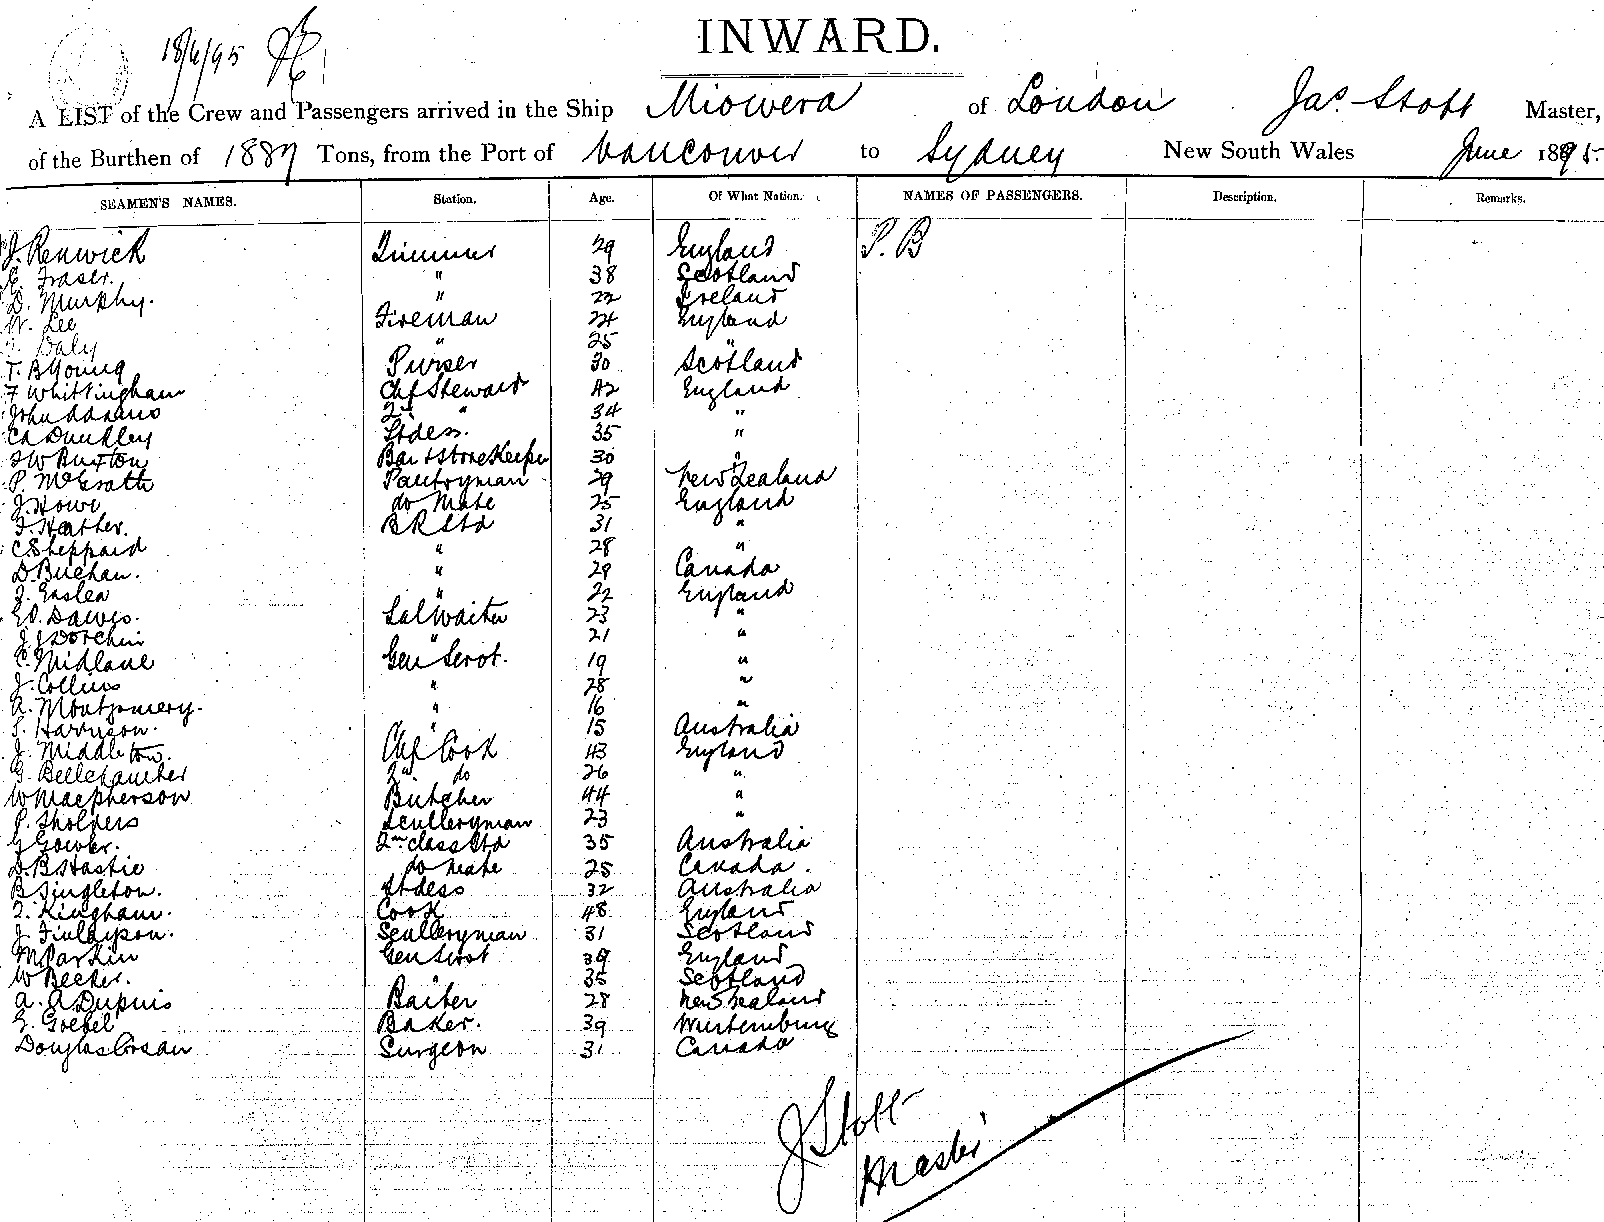 INWARD.
18/6/95
A LIST of the Crew and Passengers arrived in the Ship Miowera of London Jas Stott Master,
of the Burthen of 1887 Tons, from the Port of Vancouver to Sydney New South Wales June 1895.
SEAMEN'S NAMES. Station. Age. Of What Nation. NAMES OF PASSENGERS. Description. Remarks.
J. Renwick Trimmer 29 England P. B
E. Fraser. " 38 Scotland
D. Murphy. " 22 Ireland
W. Lee Fireman 24 England
Daly " 25 "
T. B Young Purser 30 Scotland
F Whittingham Chf Steward 42 England
John Adams 2nd " 34 "
CA Dunkley Stdess. 35 "
W Buxton Bar & StoreKeeper 30 "
P. McGrath Pantryman 29 New Zealand
J. Howe do Mate 25 England
Heather. BR Std 31 "
C. Sheppard " 28 "
D Buchan. " 29 Canada
J. Easlea " 22 England
Dawes. Sal Waiter 23 "
J J Dorchin " 21 "
C. Midlane Gen Servt. 19 "
J. Collins " 28 "
A. Montgomery. " 16 "
S. Harrison. " 15 Australia
J. Middleton. Chf Cook 43 England
G. 2nd do 26 "
W Macpherson Butcher 44 "
P. Sculleryman 23 "
G Gower. 2nd class Std 35 Australia
D. B Hastie do mate 25 Canada.
B Singleton. Stdess 32 Australia
Kingham. Cook 48 England
J. Finlayson. Sculleryman 31 Scotland
M Parkin Gen Servt 39 England
W Becker. 35 Scotland
A. A Dupuis Barber 28 New Zealand
Goebel Baker. 39 Wurtemburg
Douglas Corsan Surgeon 31 Canada
J Stott
Master